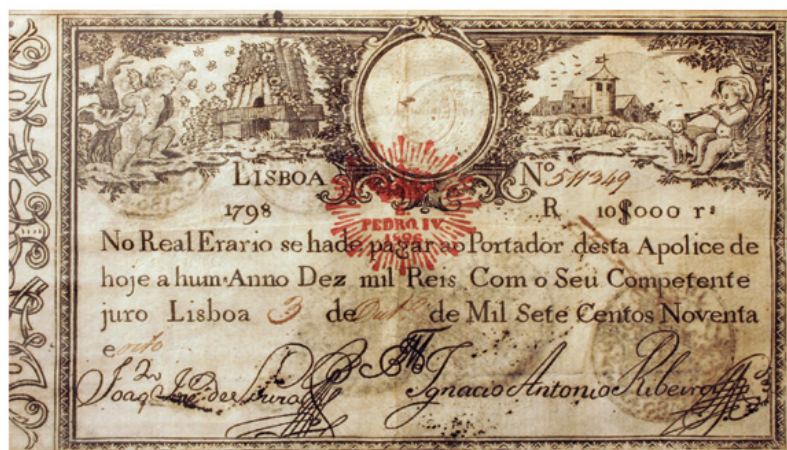 LISBOA Nº 511349
1798 R 10$000 rˢ
PEDRO IV
1826
No Real Erario se hade pagar ao Portador desta Apolice de
hoje a hum Anno Dez mil Reis Com o Seu Competente
juro Lisboa 3 de Outº de Mil Sete Centos Noventa
e outo
Ignacio Antonio Ribeiro